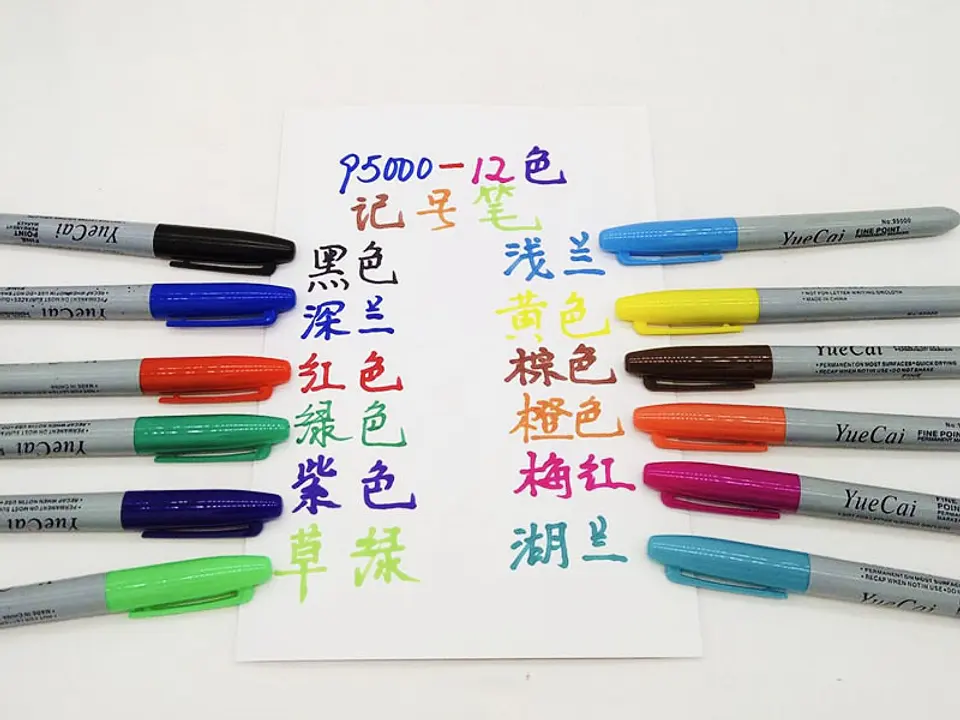 95000-12色
记号笔
黑色 浅兰
深兰 黄色
红色 棕色
绿色 橙色
紫色 梅红
草绿 湖兰
YueCai FINE POINT PERMANENT MARKER
YueCai
YueCai
YueCai
YueCai
No:95000
YueCai FINE POINT
• NOT FOR LETTER WRITING OR CLOTH
• MADE IN CHINA
YueCai
• PERMANENT ON MOST SURFACES • QUICK DRYING
• RECAP WHEN NOT IN USE • DO NOT SHAKE
FINE
YueCai FINE POINT
YueCai FINE POINT
• PERMANENT ON MOST
• RECAP WHEN NOT IN USE • DO
YueCai